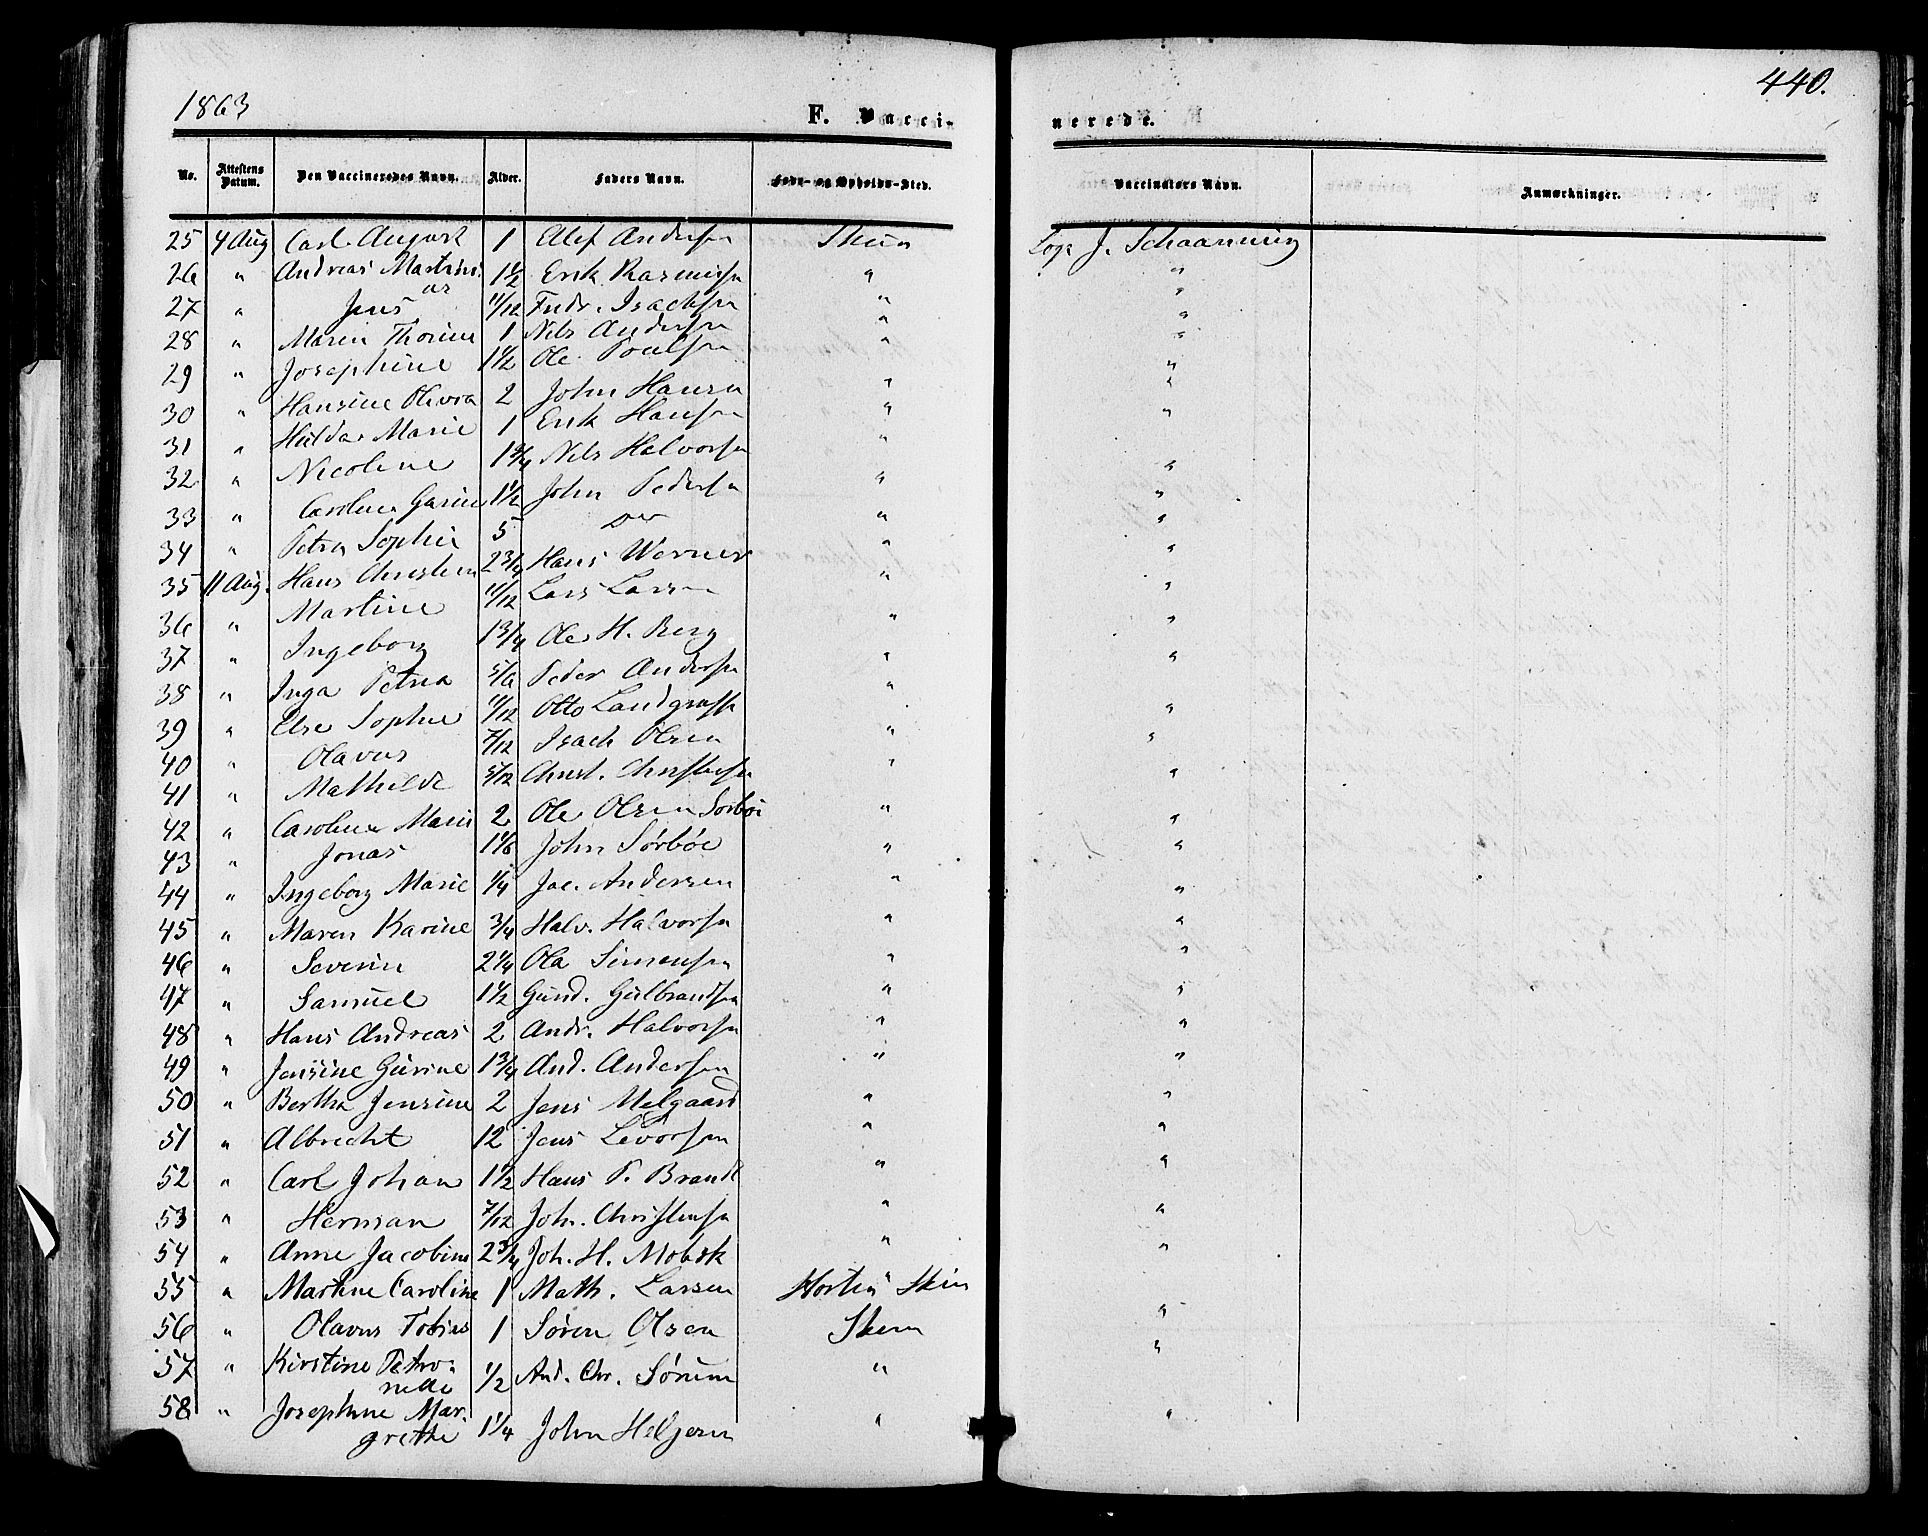 1863
440.
F. Vacci-
nerede.
No. Attestens Datum. Den Vaccineredes Navn. Alder. Faders Navn. Føde- og Opholds-Sted. Vaccinators Navn. Anmærkninger.
25 4 Aug Carl August 1 Alef Andersen Skien J. Schaanning
26 " Andreas Martini- 1 1/2 Erik Rasmussen " "
us
27 " Jens 11/12 Fredr. Isachsen " "
28 " Maren Thorine 1 Nils Andersen " "
29 " Josephine 1 1/2 Ole Poulsen " "
30 " Hansine Olivia 2 John Hansen " "
31 " Hulda Marie 1 Erik Hansen " "
32 " Nicoline 1 3/4 Nils Halvorsen " "
33 " Caroline Gurine 1 1/2 John Pedersen " "
34 " Petra Sophie 5 " "
35 11 Aug. Hans Christian 2 3/4 Hans Werner " "
36 " Martine 11/12 Lars Larsen " "
37 " Ingeborg 1 3/4 Ole H. Berg " "
38 " Inga Petra 5/6 Peder Andersen " "
39 " Else Sophie 11/12 Otto Landgraff " "
40 " Olavus 7/12 Isach Olsen " "
41 " Mathilde 5/12 Christ. Christensen " "
42 " Caroline Marie 2 Ole Olsen Sørbøe " "
43 " Jonas 1 1/6 John Sørbøe " "
44 " Ingeborg Marie 1/4 Jac. Andersen " "
45 " Maren Karine 3/4 Halv. Halvorsen " "
46 " Severin 2 1/4 Ola Simensen " "
47 " Samuel 1 1/2 Gund. Gulbrandsen " "
48 " Hans Andreas 2 Andr. Halvorsen " "
49 " Jensine Gurine 1 3/4 And. Andersen " "
50 " Bertha Jensine 2 Jens Melgaard " "
51 " Albrecht 12 Jens Levorsen " "
52 " Carl Johan 1 1/2 Hans P. Brandt " "
53 " Herman 7/12 Joh. Christensen " "
54 " Anne Jacobine 2 3/4 Joh. H. Mobæk " "
55 " Martine Caroline 1 Math. Larsen Skien
56 " Olavus Tobias 1 Søren Olsen Skien "
57 " Kirstine Petro- 1/2 And. Chr. Sørum " "
nelle
58 " Josephine Mar- 1 1/4 John Helgesen " "
grethe